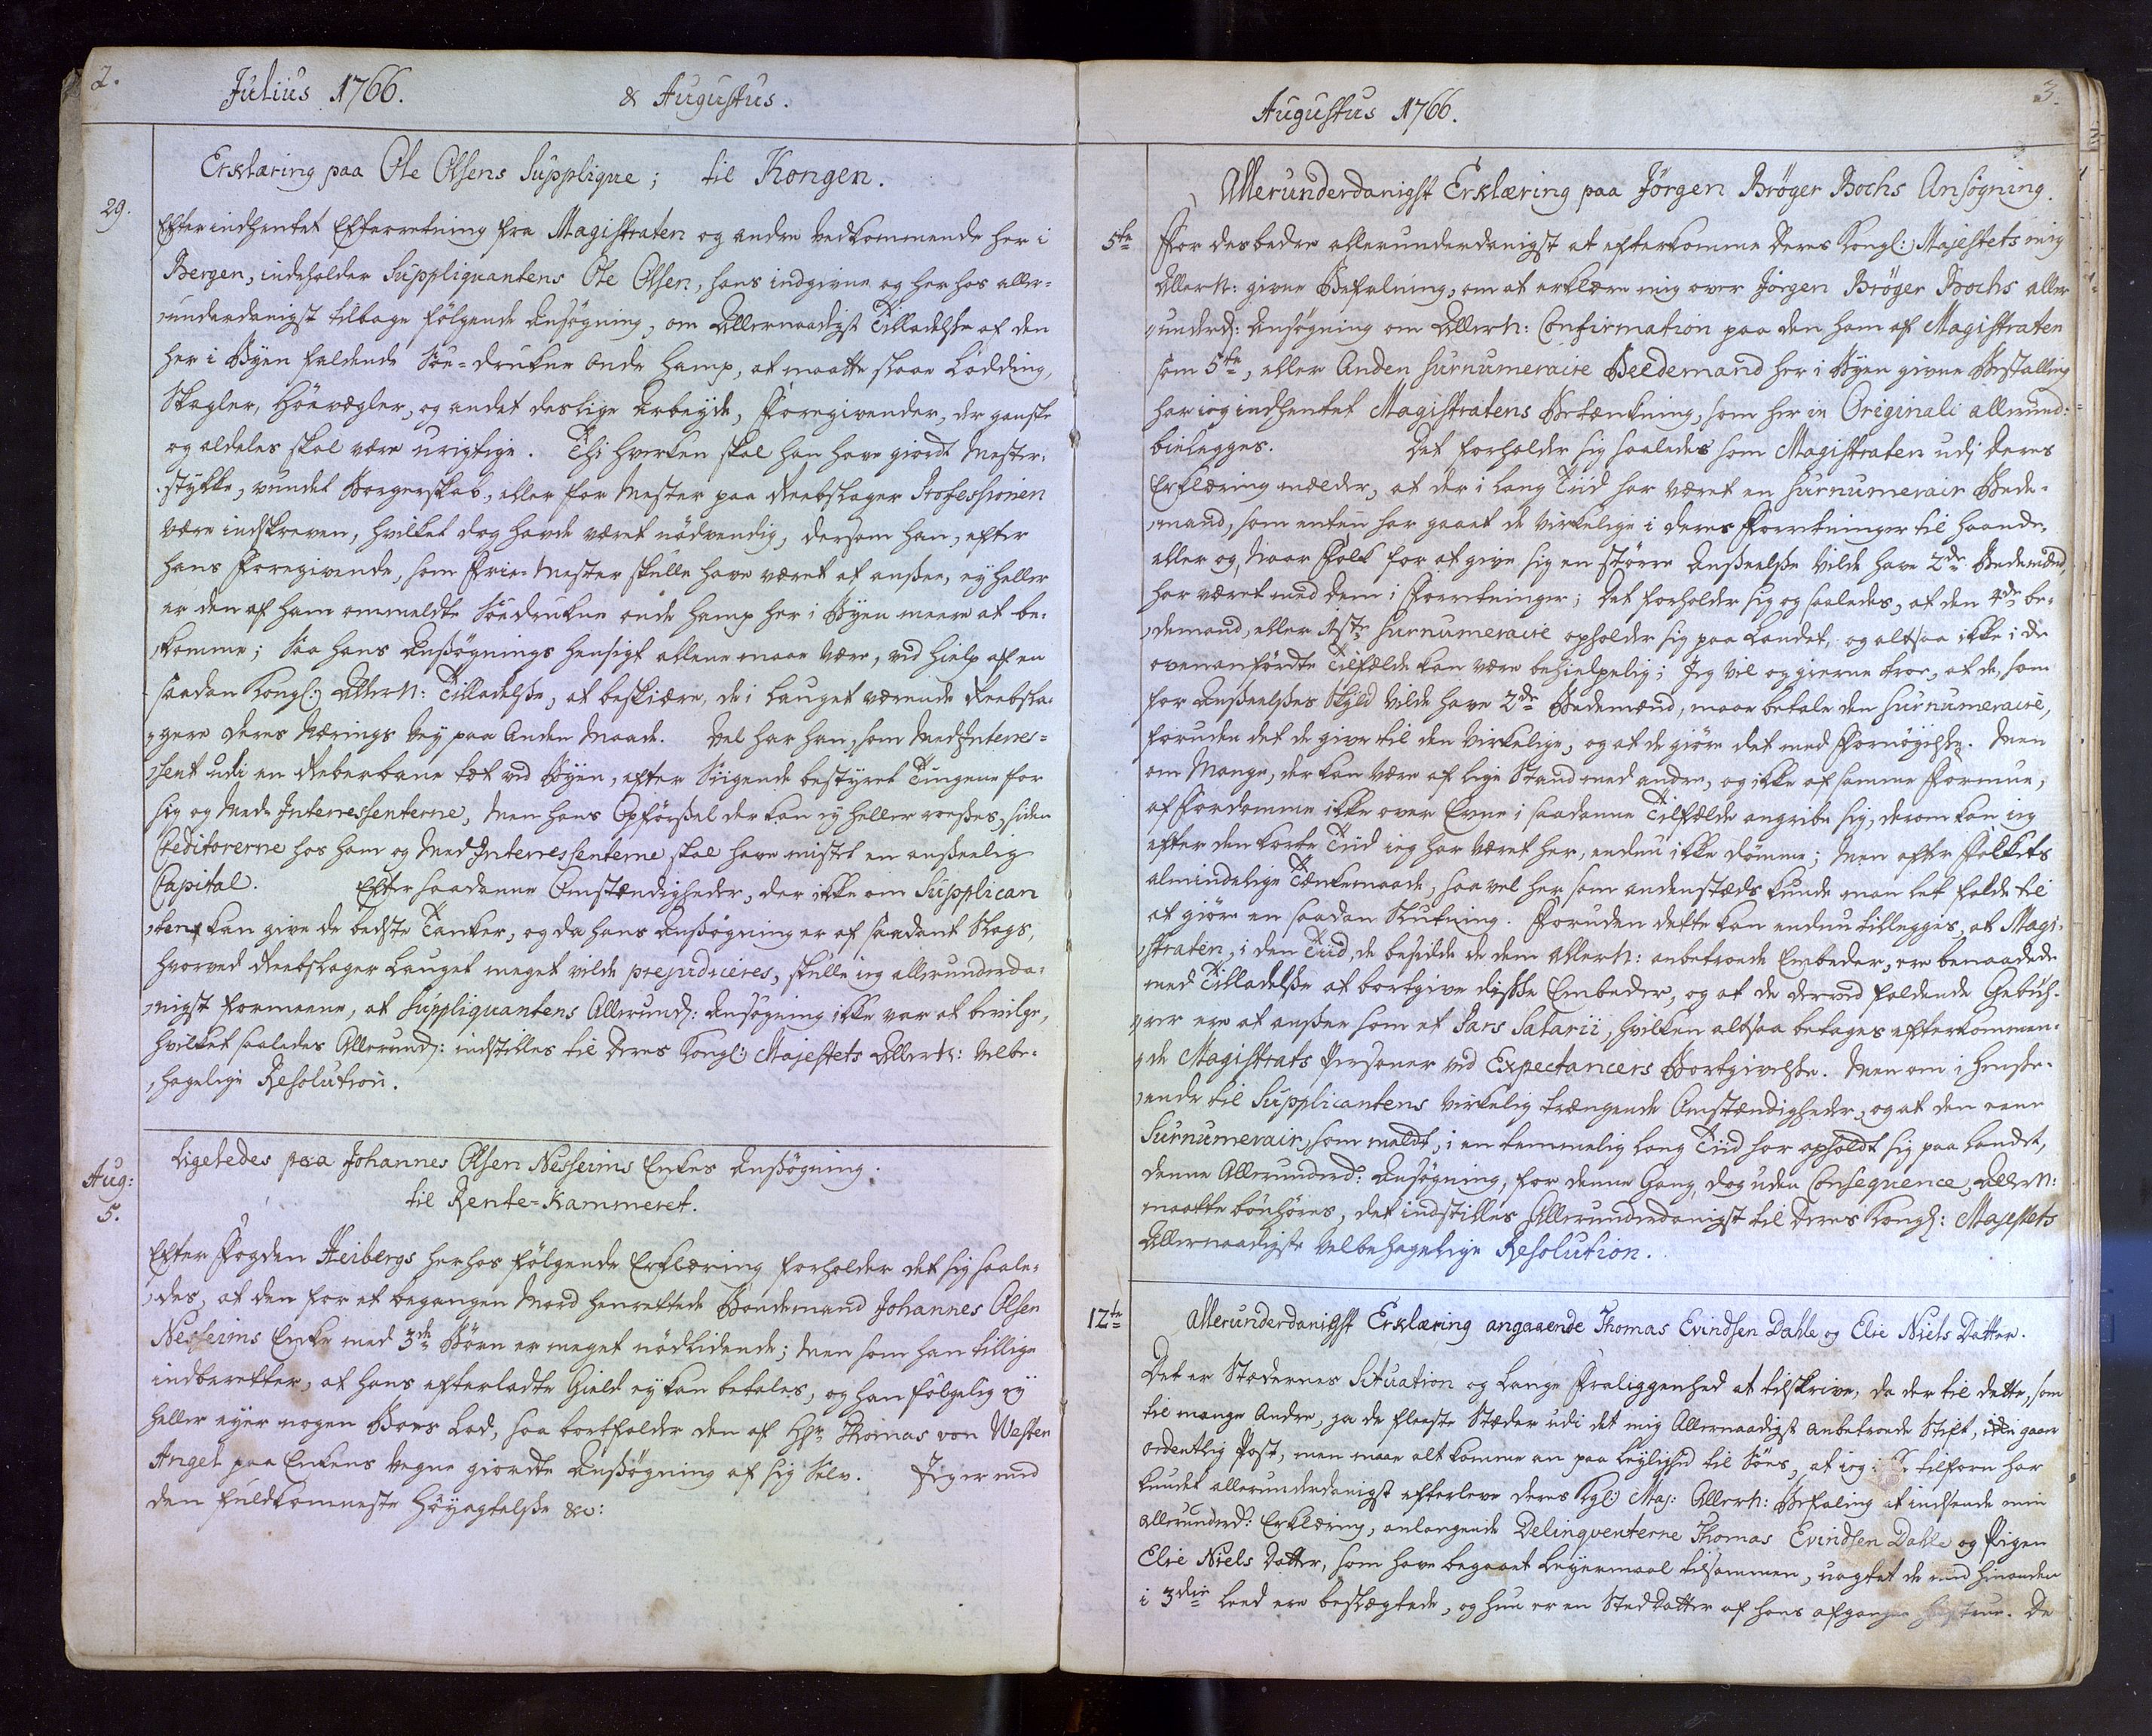 2.
Julius 1766. & Augustus.
Erklæring paa Ole Olsens Supplique; til Kongen.
29.
Efter indhentet Efterretning fra Magistraten og andre vedkommende her i
Bergen, indeholder Suppliquantens Ole Olsen, hans indgivne og her hos aller-
underdanigst tilbage fölgende Ansögning, om Allernaadigst Tilladelse af den
her i Byen faldende Söe-drukne onde Hamp, at maatte slaae Lodding,
Skagler, Höevægler, og andet deslige Arbeyde, Foregivender, der ganske
og aldeles skal være urigtige. Thi hverken skal han have giordt Mester-
stykke, vundet Borgerskab, eller for Mester paa Reebslager Professionen
være indskreven, hvilket dog havde været nödvendig, dersom han, efter
hans Foregivende, som Frie-Mester skulle have været at ansee, ey heller
er den af ham ommeldte Söedrukne onde Hamp her i Byen meere at be-
komme; Saa hans Ansögnings hensigt allene maae være, ved hielp af en
saadan Kongl: Allern: Tilladelse, at beskiære, de i Lauget værende Reebsla-
gere deres Nærings Vey paa Anden Maade. Vel har han, som Med Interes-
sent udi en Reberbane tæt ved Byen, efter Siigende bestyret Tingene for
sig og Med Interressenterne, Men hans Opförsel der kan ey heller roeses, siden
Creditorerne hos ham og Med Interressenterne skal have mistet en anseelig
Capital. Efter saadanne Omstændigheder, der ikke om Supplican
ten kan give de bedste Tanker, og da hans Ansögning er af saadant Slags,
hvorved Reebslager Lauget meget vilde prejudiceres, skulle ieg allerunderda-
nigst formeene, at Suppliquantens Allerund: Ansögning ikke var at bevilge,
hvilket saaledes Allerund: indstilles til Deres Kongl: Majestets Allern: Velbe-
hagelige Resolution.
Aug:
5.
Ligeledes paa Johannes Olsen Nesseims Enkes Ansögning.
til Rente-Kammeret.
Efter Fogden Heibergs herhos fölgende Erklæring forholder det sig saale-
des, at den for et begangen Mord henrettede Bondemand Johannes Olsen
Nesseims Enke med 3de Börn er meget nödlidende; Men som han tillige
indberetter, at hans efterladte Gield ey kan betales, og han fölgelig ey
heller eyer nogen Boes Lod, saa bortfalder den af Hr Thomas von Westen
Angel paa Enkens Vegne giordte Ansögning af sig Selv. Jeg er med
den fuldkomneste Höyagtelse &c:
3.
Augustus 1766.
Allerunderdanigst Erklæring paa Jörgen Bröger Bochs Ansögning.
5te
For des bedre allerunderdanigst at efterkomme Deres Kongl: Majestets mig
Allern: givne Befalning, om at erklære mig over Jörgen Bröger Bochs aller
underd: Ansögning om Allern: Confirmation paa den ham af Magistraten
som 5te, eller Anden Surnumeraire Beedemand her i Byen givne Bestalling
har ieg indhentet Magistratens Betænkning, som her in Originali allerund:
bielegges. Det forholder sig saaledes som Magistraten udi deres
Erklæring melder, at der i lang Tiid har været en Surnumerair Bede-
mand, som enten har gaaet de Virkelige i deres Forretninger til haande,
eller og, Naar Folk for at give sig en större Anseelse vilde have 2de Bedemænd,
har været med dem i Forretninger; Det forholder sig og saaledes, at den 4de be-
demand, eller 1ste Surnumeraire opholder sig paa Landet, og altsaa ikke i de
ovenanfördte Tilfælde kan være behielpelig; Jeg vil og gierne troe, at de, som
for Anseelses Skyld vilde have 2de Bedemænd, maae betale den Surnumeraire,
foruden det de give til den Virkelige, og at de giöre det med Fornöyelse. Men
om Mange, der kan være af lige Stand med andre, og ikke af samme Formue,
af Fordomme ikke over Evne i saadanne Tilfælde angribe sig, derom kan ieg
efter den korte Tiid ieg har været her, endnu ikke dömme; Men efter Folkets
almindelige Tænkemaade, saavel her som andenstæds kunde man let falde til
at giöre en saadan Slutning. Foruden dette kan endnu tillegges, at Magi-
straten, i den Tiid, de besidde de dem Allern: anbetroede Embeder, ere benaadede
med Tilladelse at bortgive disse Embeder, og at de derved faldende Gebüh-
rer ere at ansee som et Pars Salarii, hvilken altsaa betages efterkommen-
de Magistrats Personer ved Expectancers Bortgivelse. Men om i hense-
ende til Supplicantens Virkelig trængende Omstændigheder, og at den eene
Surnumerair, som meldt, i en temmelig lang Tiid har opholdt sig paa Landet,
denne Allerunderd: Ansögning, for denne Gang, dog uden Consequence, Allern:
maatte bönhöres, det indstilles Allerunderdanigst til Deres Kongl: Majestets
Allernaadigste Velbehagelige Resolution.
12te
Allerunderdanigst Erklæring angaaende Thomas Evindsen Dahle og Elie Niels Datter.
Det er Stædernes Situation og Lange Fraliggenhed at tilskrive, da der til dette, som
til mange Andre, ja de fleeste Stæder udi det mig Allernaadigst anbetroede Stift, gaar
ordentlig Post, men maae alt komme an paa Leylighed til Söes, at ieg tilforn har
kundet allerunderdanigst efterleve Deres Kgl: Maj: Allern: Befaling at indsende min
allerunderd: Erklæring, anlangende Delinqventerne Thomas Evindsen Dahle og Pigen
Elie Niels Datter, som have begaaet Leyermaal tilsammen, uagtet de med hinanden
i 3die Leed ere beslægtede, og hun er en Sted Datter af hans afgangne Hustrue. De